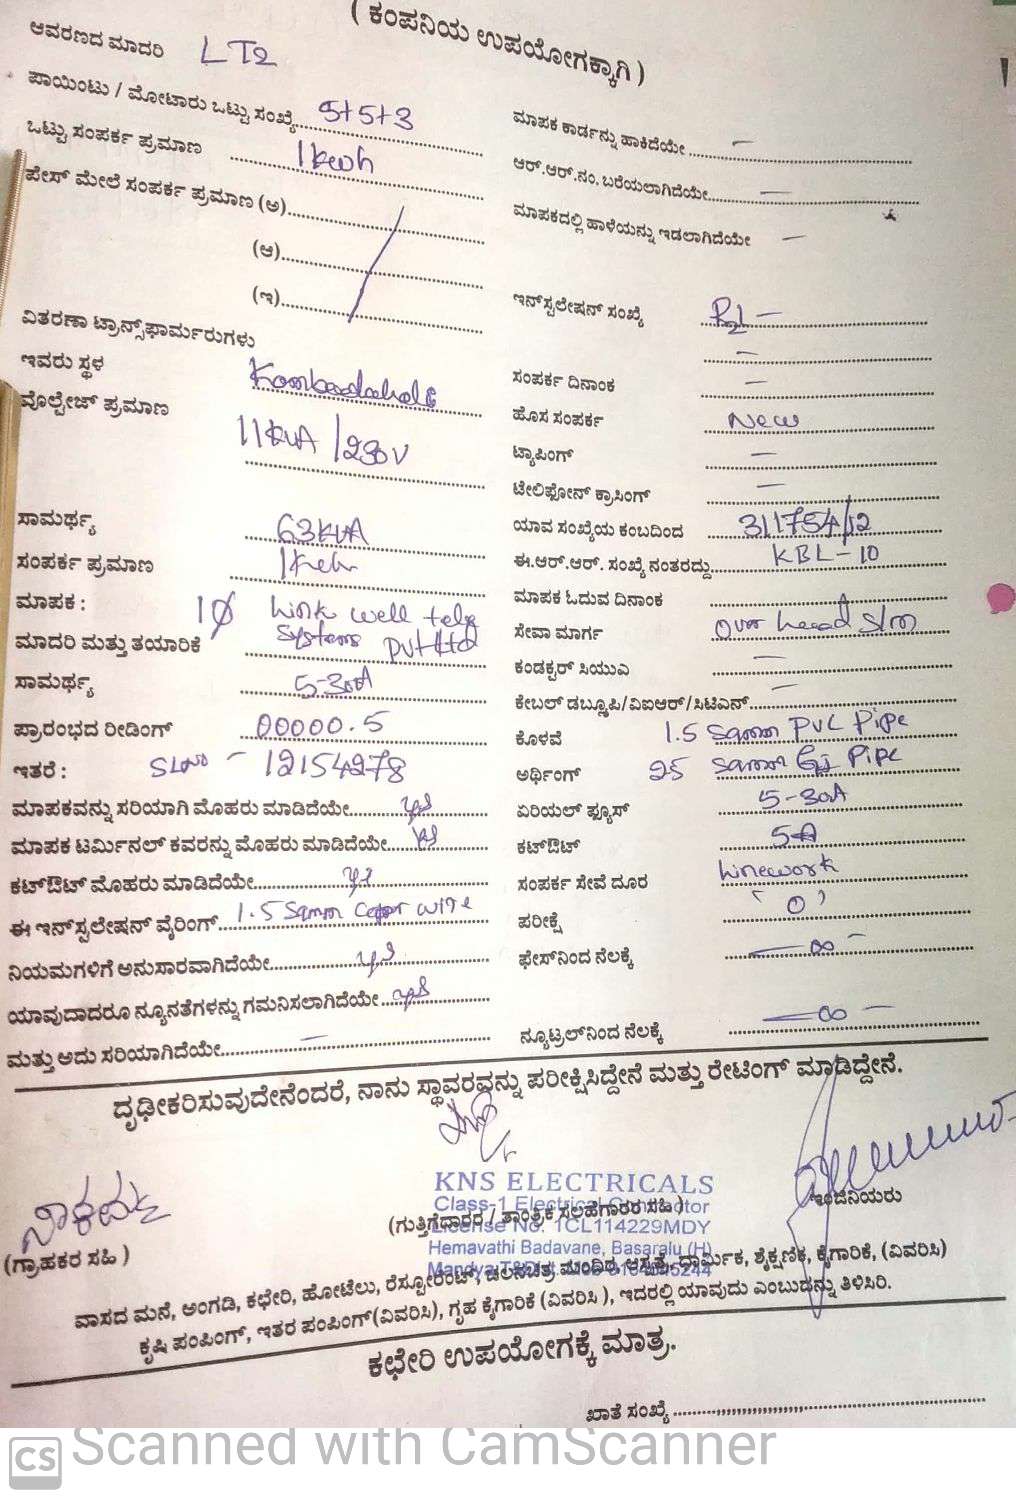 ( ಕಂಪನಿಯ ಉಪಯೋಗಕ್ಕಾಗಿ )
ಆವರಣದ ಮಾದರಿ LT2
ಪಾಯಿಂಟು / ಮೋಟಾರು ಒಟ್ಟು ಸಂಖ್ಯೆ 5+5+3
ಒಟ್ಟು ಸಂಪರ್ಕ ಪ್ರಮಾಣ 1kwh
ಪೇಸ್ ಮೇಲೆ ಸಂಪರ್ಕ ಪ್ರಮಾಣ (ಅ)
(ಆ)
(ಇ)
ವಿತರಣಾ ಟ್ರಾನ್ಸ್‌ಫಾರ್ಮರುಗಳು
ಇವರು ಸ್ಥಳ
ವೊಲ್ಟೇಜ್ ಪ್ರಮಾಣ 11kVA / 230V
ಸಾಮರ್ಥ್ಯ 63kVA
ಸಂಪರ್ಕ ಪ್ರಮಾಣ
ಮಾಪಕ : 1Ø Link well tele
ಮಾದರಿ ಮತ್ತು ತಯಾರಿಕೆ Systems Pvt Ltd
ಸಾಮರ್ಥ್ಯ 5-30A
ಪ್ರಾರಂಭದ ರೀಡಿಂಗ್ 00000.5
ಇತರೆ : SLNO - 12154278
ಮಾಪಕವನ್ನು ಸರಿಯಾಗಿ ಮೊಹರು ಮಾಡಿದೆಯೇ yes
ಮಾಪಕ ಟರ್ಮಿನಲ್ ಕವರನ್ನು ಮೊಹರು ಮಾಡಿದೆಯೇ yes
ಕಟ್‌ಔಟ್ ಮೊಹರು ಮಾಡಿದೆಯೇ yes
ಈ ಇನ್‌ಸ್ಟಲೇಷನ್ ವೈರಿಂಗ್ 1.5 Sqmm wire
ನಿಯಮಗಳಿಗೆ ಅನುಸಾರವಾಗಿದೆಯೇ yes
ಯಾವುದಾದರೂ ನ್ಯೂನತೆಗಳನ್ನು ಗಮನಿಸಲಾಗಿದೆಯೇ yes
ಮತ್ತು ಅದು ಸರಿಯಾಗಿದೆಯೇ –
ಮಾಪಕ ಕಾರ್ಡನ್ನು ಹಾಕಿದೆಯೇ –
ಆರ್.ಆರ್.ನಂ. ಬರೆಯಲಾಗಿದೆಯೇ –
ಮಾಪಕದಲ್ಲಿ ಹಾಳೆಯನ್ನು ಇಡಲಾಗಿದೆಯೇ –
ಇನ್‌ಸ್ಟಲೇಷನ್ ಸಂಖ್ಯೆ
ಸಂಪರ್ಕ ದಿನಾಂಕ –
ಹೊಸ ಸಂಪರ್ಕ New
ಟ್ಯಾಪಿಂಗ್ –
ಟೆಲಿಫೋನ್ ಕ್ರಾಸಿಂಗ್ –
ಯಾವ ಸಂಖ್ಯೆಯ ಕಂಬದಿಂದ 311754/12
ಈ.ಆರ್.ಆರ್. ಸಂಖ್ಯೆ ನಂತರದ್ದು KBL-10
ಮಾಪಕ ಓದುವ ದಿನಾಂಕ
ಸೇವಾ ಮಾರ್ಗ Over head S/m
ಕಂಡಕ್ಟರ್ ಸಿಯುಎ –
ಕೇಬಲ್ ಡಬ್ಲೂಪಿ/ವಿಐಆರ್/ಸಿಟಿಎನ್ –
ಕೊಳವೆ 1.5 Sqmm PVC Pipe
ಅರ್ಥಿಂಗ್ 25 Sqmm GI Pipe
ಏರಿಯಲ್ ಫ್ಯೂಸ್ 5-30A
ಕಟ್‌ಔಟ್ 5A
ಸಂಪರ್ಕ ಸೇವೆ ದೂರ Linework
ಪರೀಕ್ಷೆ ' 0 '
ಫೇಸ್‌ನಿಂದ ನೆಲಕ್ಕೆ – ∞ –
ನ್ಯೂಟ್ರಲ್‌ನಿಂದ ನೆಲಕ್ಕೆ – ∞ –
ದೃಢೀಕರಿಸುವುದೇನೆಂದರೆ, ನಾನು ಸ್ಥಾವರವನ್ನು ಪರೀಕ್ಷಿಸಿದ್ದೇನೆ ಮತ್ತು ರೇಟಿಂಗ್ ಮಾಡಿದ್ದೇನೆ.
KNS ELECTRICALS
Class-1 Electrical Contractor
(ಗುತ್ತಿಗೆದಾರರ / ತಾಂತ್ರಿಕ ಸಲಹೆಗಾರರ ಸಹಿ)
License No. 1CL114229MDY
Hemavathi Badavane, Basaralu (H)
ಇಂಜಿನಿಯರು
(ಗ್ರಾಹಕರ ಸಹಿ)
ವಾಸದ ಮನೆ, ಅಂಗಡಿ, ಕಛೇರಿ, ಹೋಟೆಲು, ರೆಸ್ಟೋರೆಂಟ್, ಚಲನಚಿತ್ರ ಮಂದಿರ, ಆಸ್ಪತ್ರೆ, ಧಾರ್ಮಿಕ, ಶೈಕ್ಷಣಿಕ, ಕೈಗಾರಿಕೆ, (ವಿವರಿಸಿ)
ಕೃಷಿ ಪಂಪಿಂಗ್, ಇತರ ಪಂಪಿಂಗ್(ವಿವರಿಸಿ), ಗೃಹ ಕೈಗಾರಿಕೆ (ವಿವರಿಸಿ), ಇದರಲ್ಲಿ ಯಾವುದು ಎಂಬುದನ್ನು ತಿಳಿಸಿರಿ.
ಕಛೇರಿ ಉಪಯೋಗಕ್ಕೆ ಮಾತ್ರ.
ಖಾತೆ ಸಂಖ್ಯೆ
CS Scanned with CamScanner